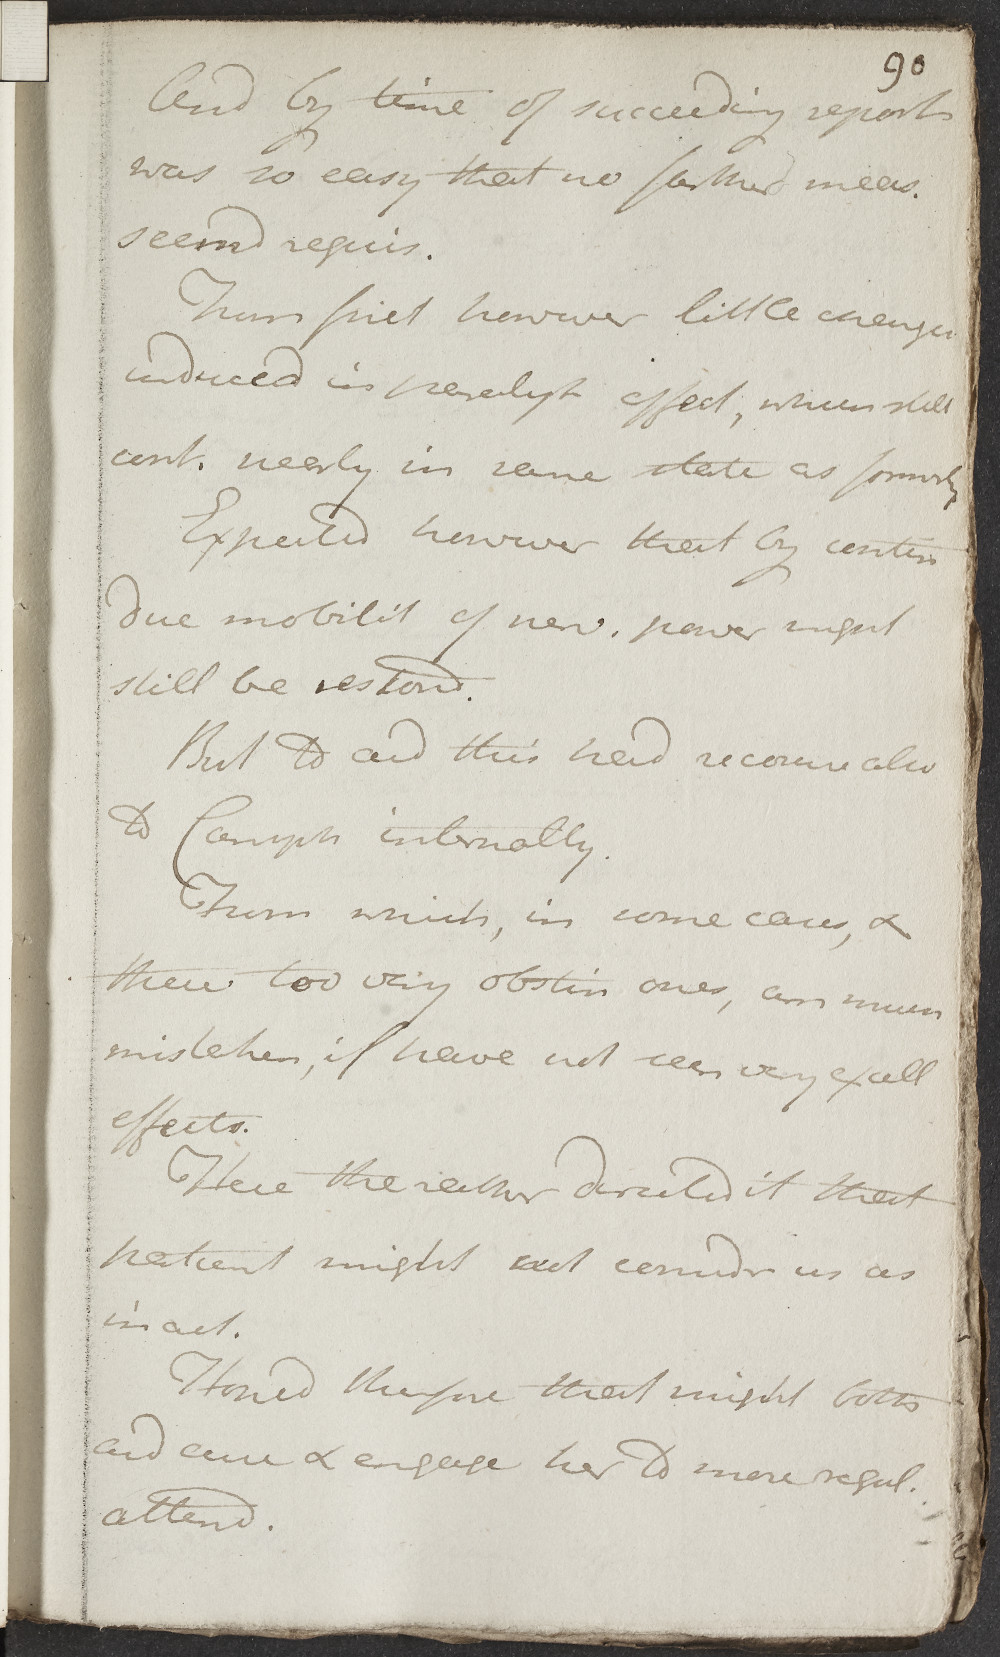 90
And by time of succeeding reports
was so easy that no farther meas.
seemd requis.
From first however little change
induced in paralyt affect, when still
cont. nearly in same state as formerly
Expected however that by contin
due mobilit of nerv. power might
still be restord.
But to aid this had recourse also
to Camph internally.
From which, in some cases, &
these too very obstin ones, am much
mistaken, if have not seen very excell
effects.
Here the rather directed it that
patient might not consider us as
inact.
Hoped therefore that might both
aid cure & engage her to more regul.
attend.